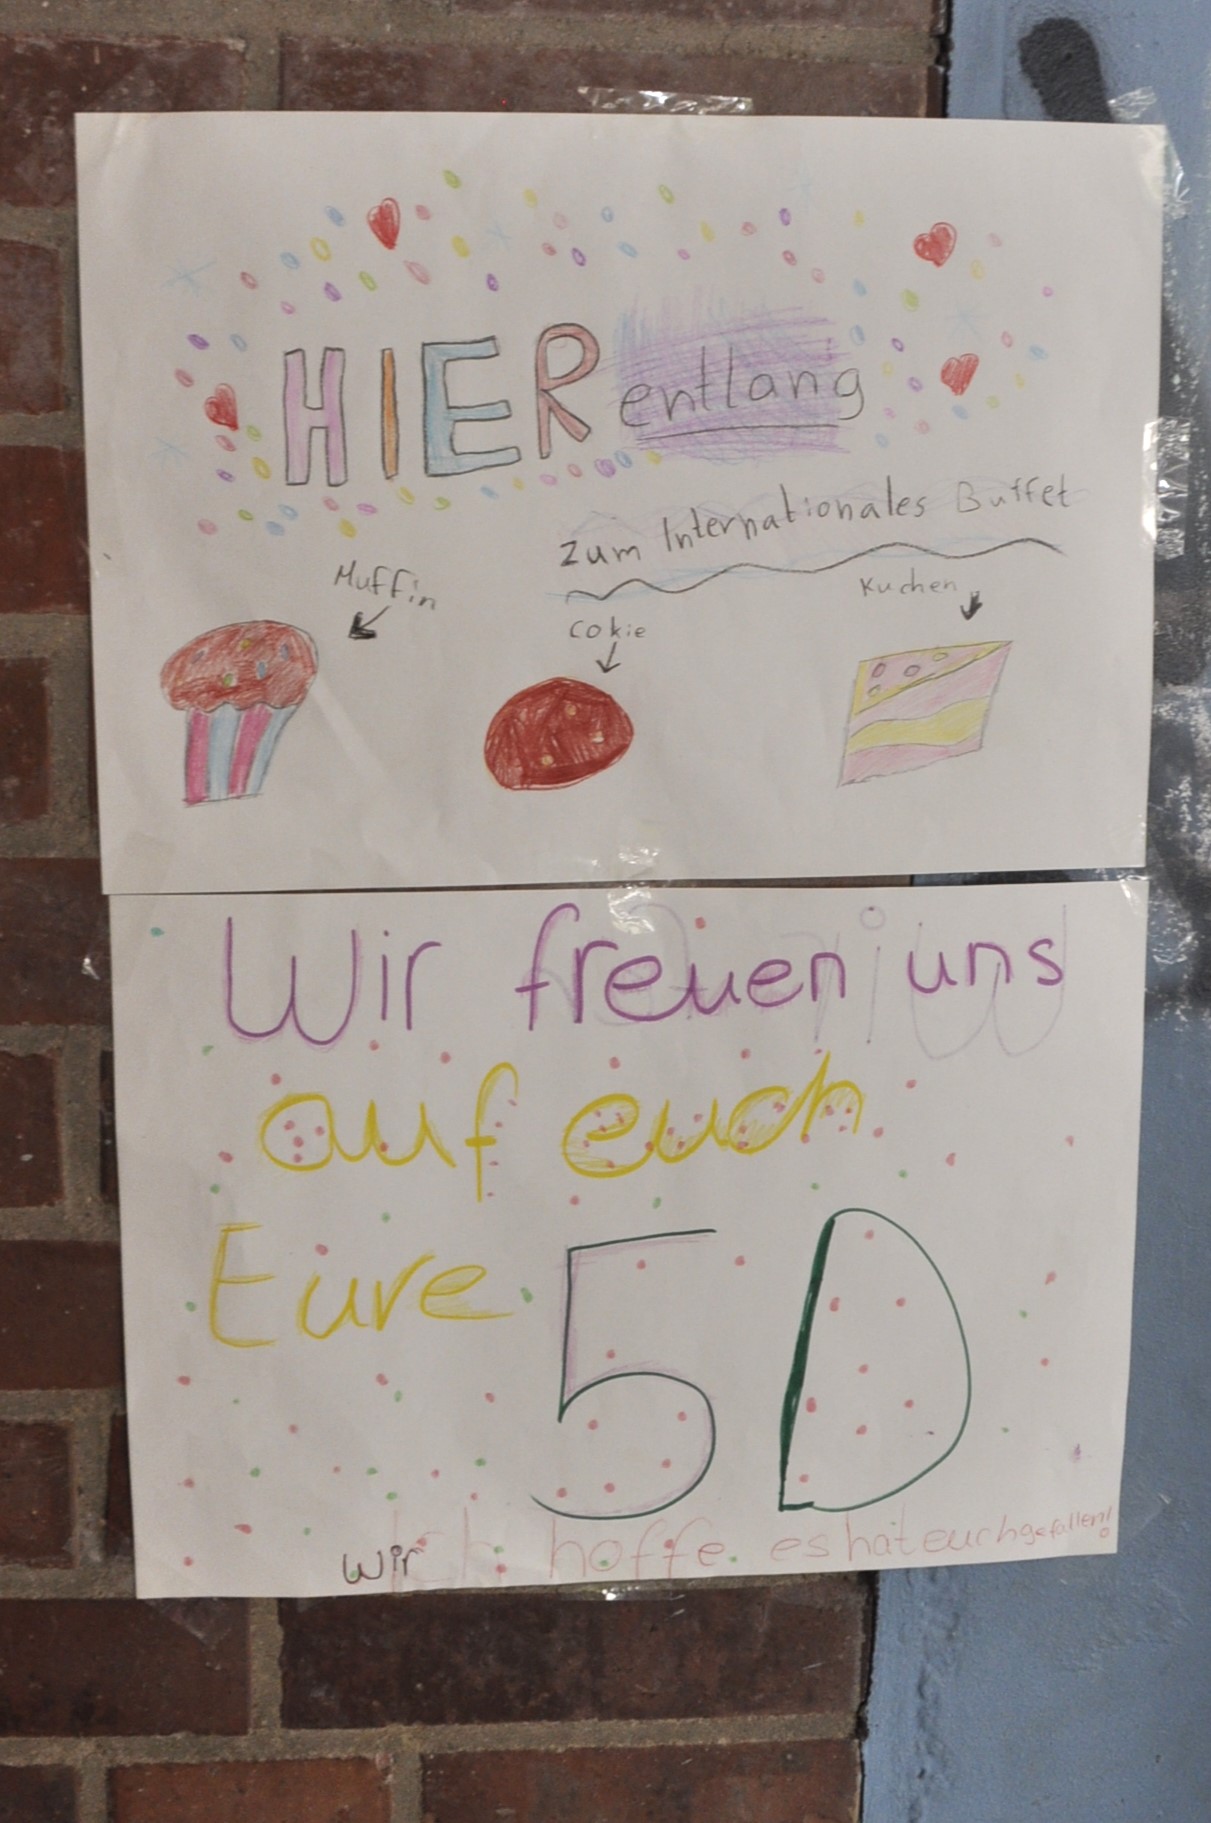 HIER entlang
zum Internationales Buffet
Muffin
Cokie
Kuchen
Wir freuen uns
auf euch
Eure 5D
wir hoffe es hat euch gefallen!